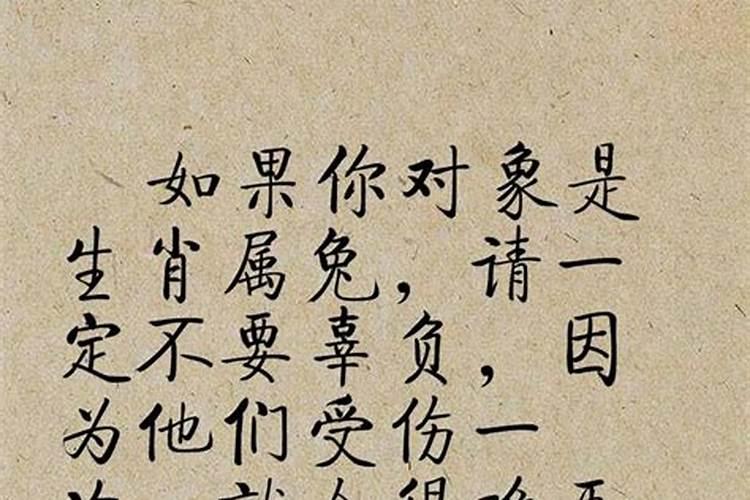 如果你对象是
生肖属兔，请一
定不要辜负，因
为他们受伤一